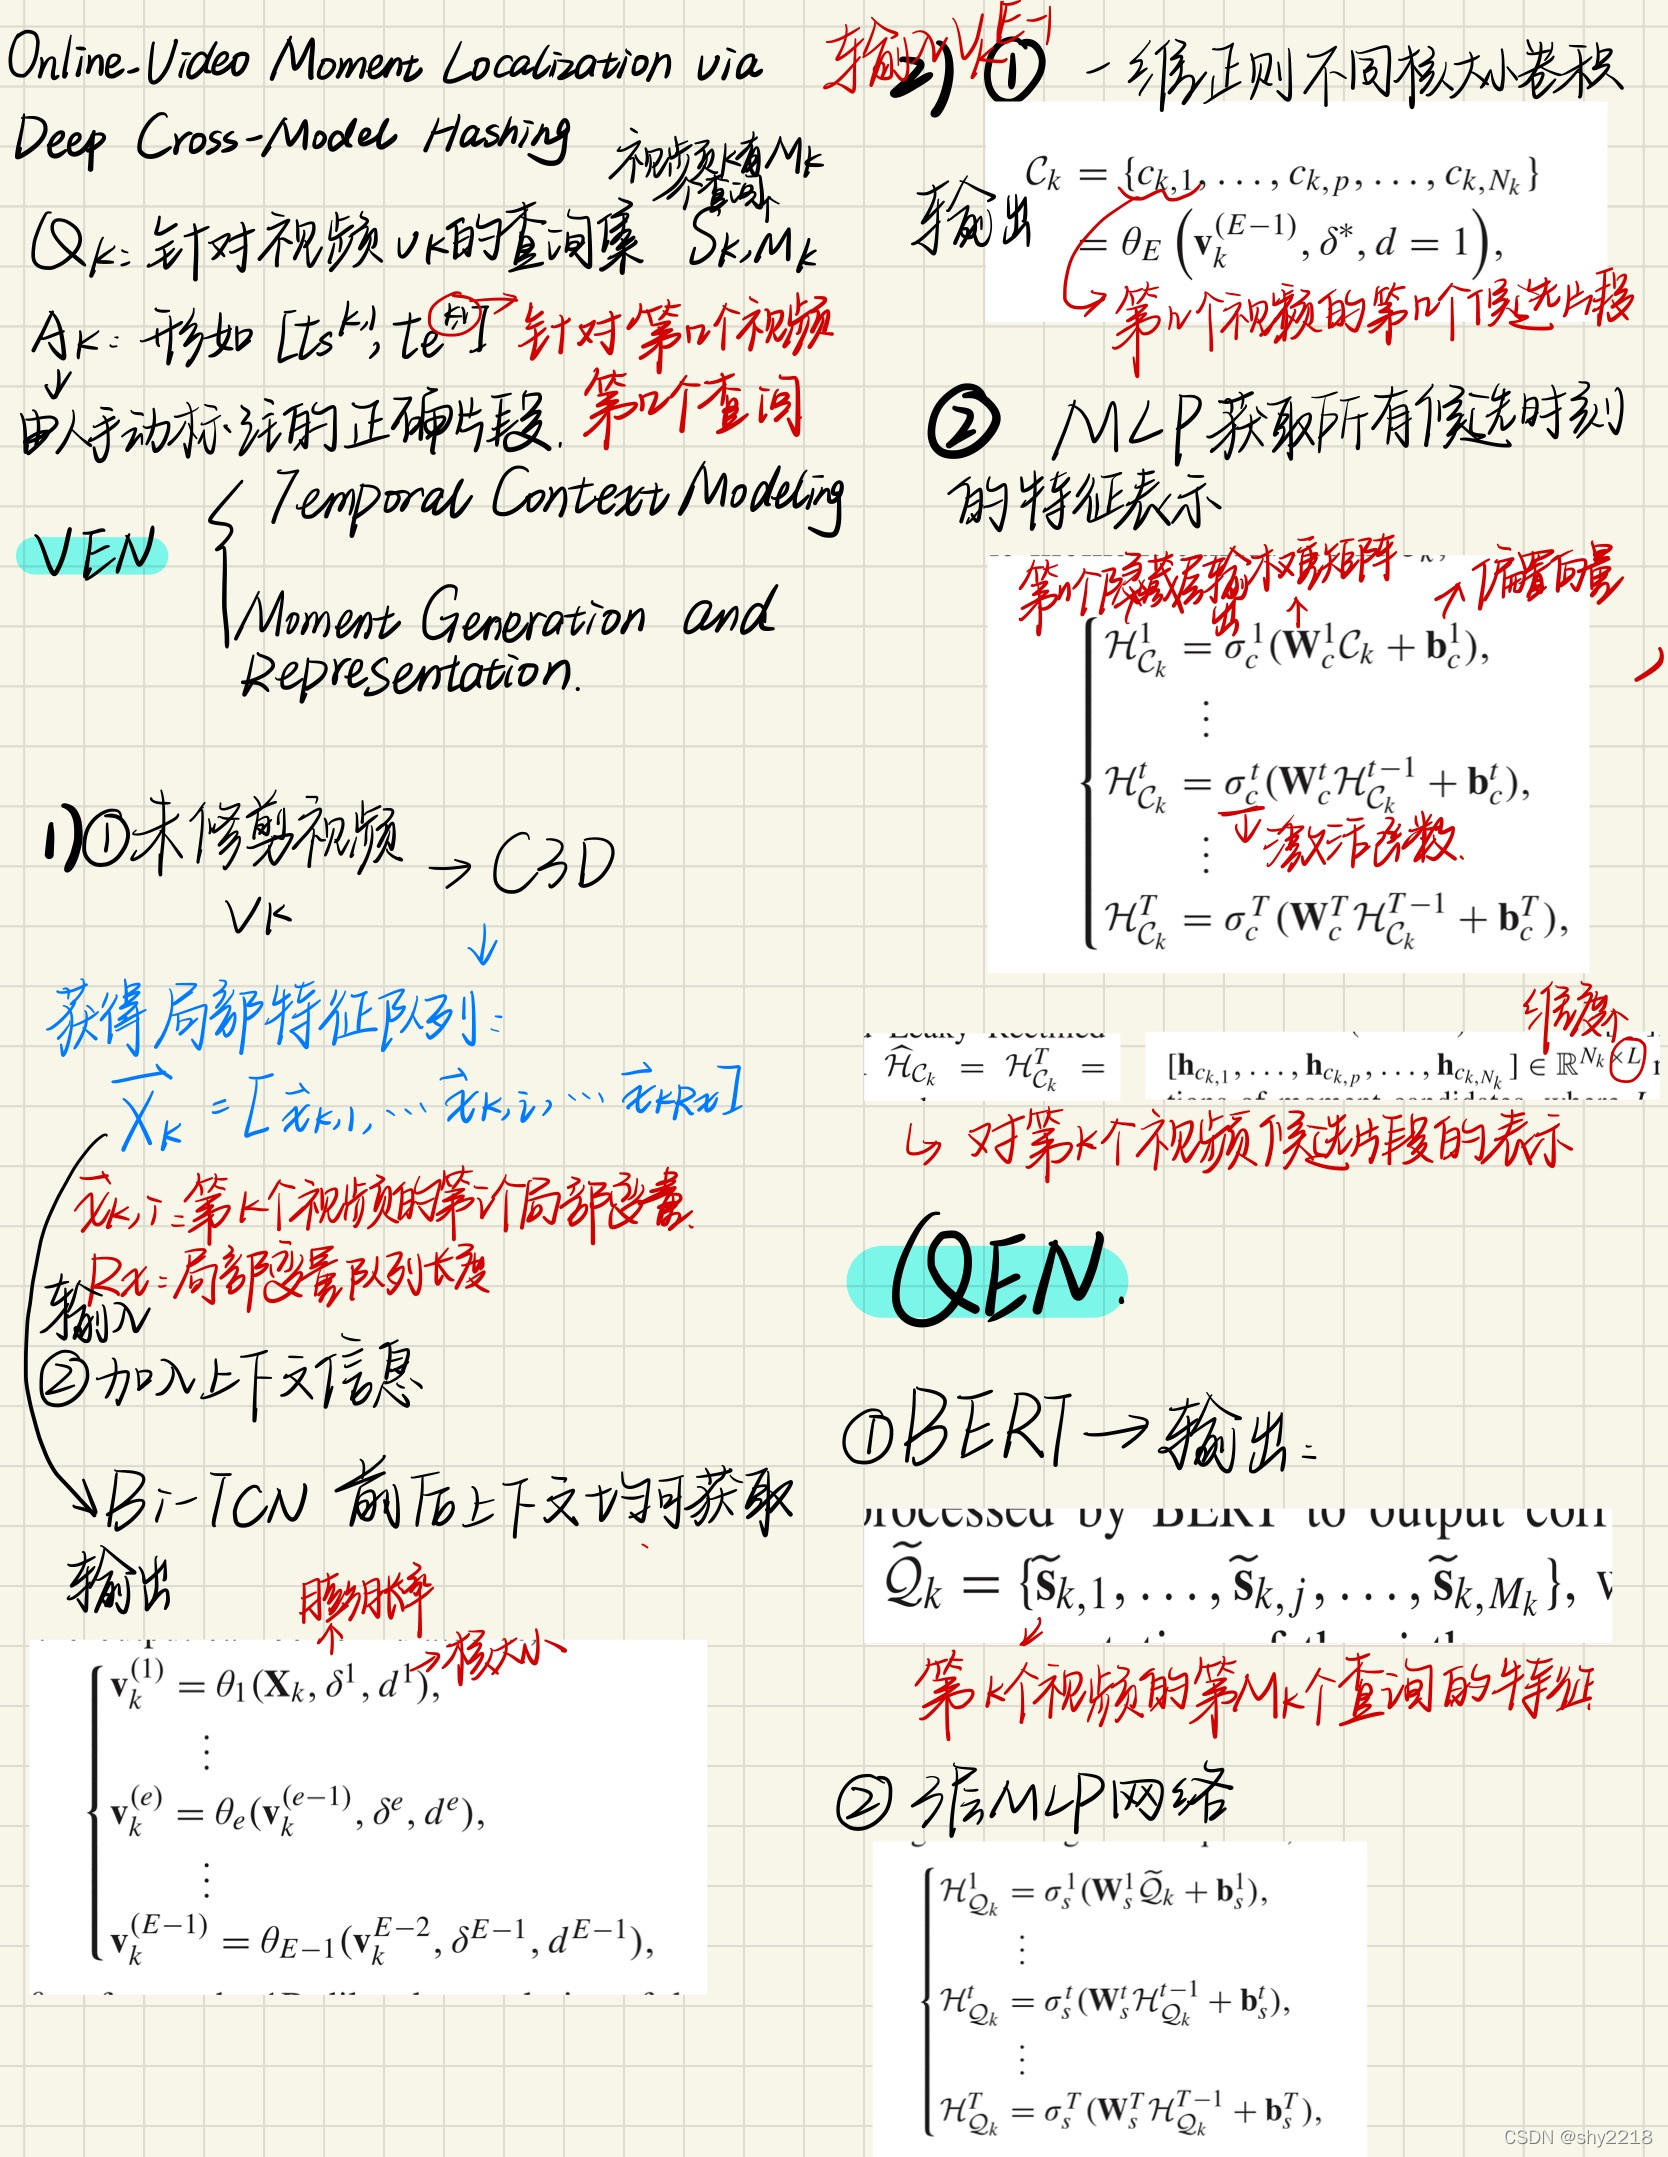 Online-Video Moment Localization via
Deep Cross-Model Hashing
视频k有Mk
个查询
Qk: 针对视频vk的查询集 Sk,Mk
Ak: 形如 [ts^{k,1}, te^{k,1}] → 针对第n个视频
第n个查询
↓
由人手动标注的正确片段.
VEN { Temporal Context Modeling
Moment Generation and
Representation.
1) ① 未修剪视频 → C3D
Vk
↓
获得局部特征队列:
X_k = [x_{k,1}, ... x_{k,i}, ... x_{kRx}]
x_{k,i}: 第k个视频的第i个局部变量.
Rx: 局部变量队列长度
输入
② 加入上下文信息
Bi-TCN 前后上下文均可获取
输出
膨胀率
↑
→ 核大小
v_k^{(1)} = θ_1(X_k, δ^1, d^1),
⋮
v_k^{(e)} = θ_e(v_k^{(e−1)}, δ^e, d^e),
⋮
v_k^{(E−1)} = θ_{E−1}(v_k^{E−2}, δ^{E−1}, d^{E−1}),
输入V_k^{E-1}
2) ① 一维正则不同核大小卷积
输出
C_k = {c_{k,1}, ..., c_{k,p}, ..., c_{k,N_k}}
= θ_E (v_k^{(E−1)}, δ*, d = 1),
→ 第n个视频的第n个候选片段
② MLP获取所有候选时刻
的特征表示
第n个隐藏层输出 权重矩阵 ↑ ↗ 偏置向量
H^1_{C_k} = σ_c^1(W_c^1 C_k + b_c^1),
⋮
H^t_{C_k} = σ_c^t(W_c^t H^{t−1}_{C_k} + b_c^t),
↓ 激活函数.
⋮
H^T_{C_k} = σ_c^T(W_c^T H^{T−1}_{C_k} + b_c^T),
维度
Leaky Rectified
Ĥ_{C_k} = H^T_{C_k} =
[h_{c_{k,1}}, ..., h_{c_{k,p}}, ..., h_{c_{k,N_k}}] ∈ ℝ^{N_k×L}
↳ 对第k个视频候选片段的表示
QEN.
① BERT → 输出:
processed by BERT to output
Q̃_k = {s̃_{k,1}, ..., s̃_{k,j}, ..., s̃_{k,M_k}},
第k个视频的第Mk个查询的特征
② 3层MLP网络
H^1_{Q_k} = σ_s^1(W_s^1 Q̃_k + b_s^1),
⋮
H^t_{Q_k} = σ_s^t(W_s^t H^{t−1}_{Q_k} + b_s^t),
⋮
H^T_{Q_k} = σ_s^T(W_s^T H^{T−1}_{Q_k} + b_s^T),
CSDN @shy2218